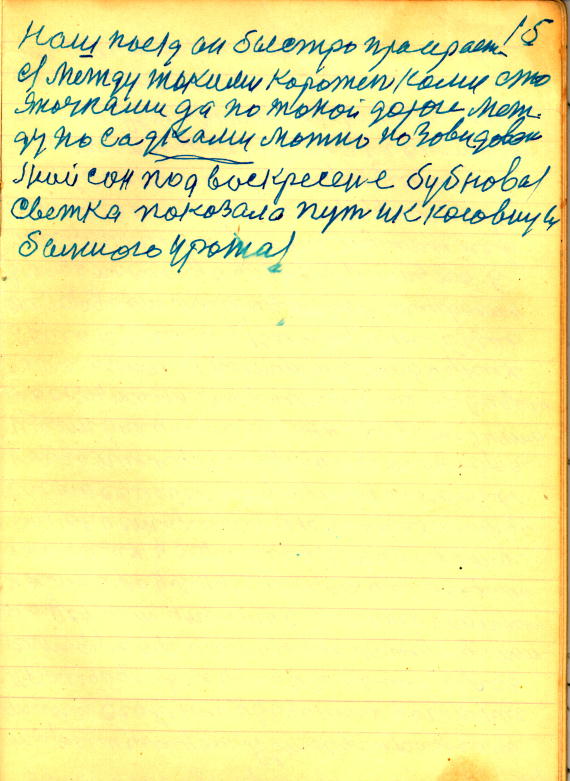 15
Наш поезд он быстро праират
ся между такими корожен ками сто
яночками да по такой дороге меж-
ду посадками можно позовидоват
Мой сон под воскресение бубновая
светка показала пут ик
большого урожая